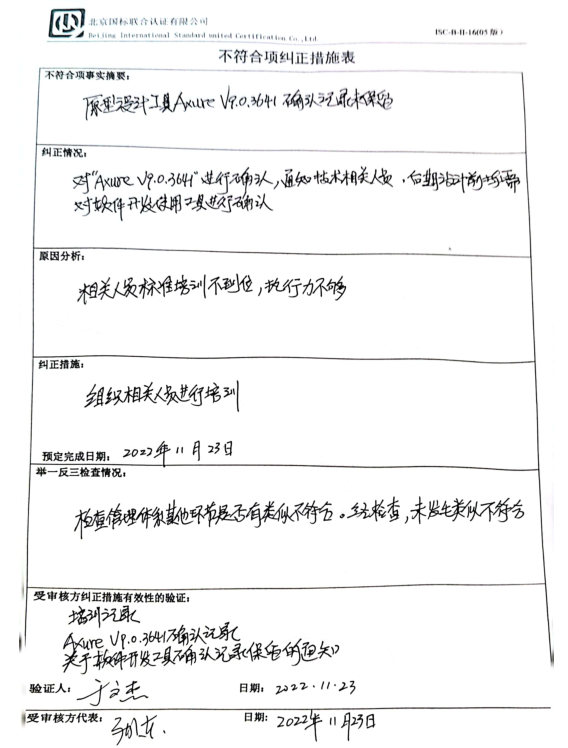 北京国标联合认证有限公司
Beijing International Standard united Certification Co.,Ltd.
ISC-B-II-16(05版)
不符合项纠正措施表
不符合项事实摘要:
原型设计工具Axure V9.0.3641确认记录未保留
纠正情况:
对"Axure V9.0.3641"进行确认,通知技术相关人员,后期设计前均需
对软件开发使用工具进行确认
原因分析:
相关人员标准培训不到位,执行力不够
纠正措施:
组织相关人员进行培训
预定完成日期: 2022年11月23日
举一反三检查情况:
检查管理体系其他环节是否有类似不符合。经检查,未发生类似不符合
受审核方纠正措施有效性的验证:
培训记录
Axure V9.0.3641确认记录
关于软件开发工具确认记录保留的通知
验证人: 于文杰 日期: 2022.11.23
受审核方代表: 日期: 2022年11月23日